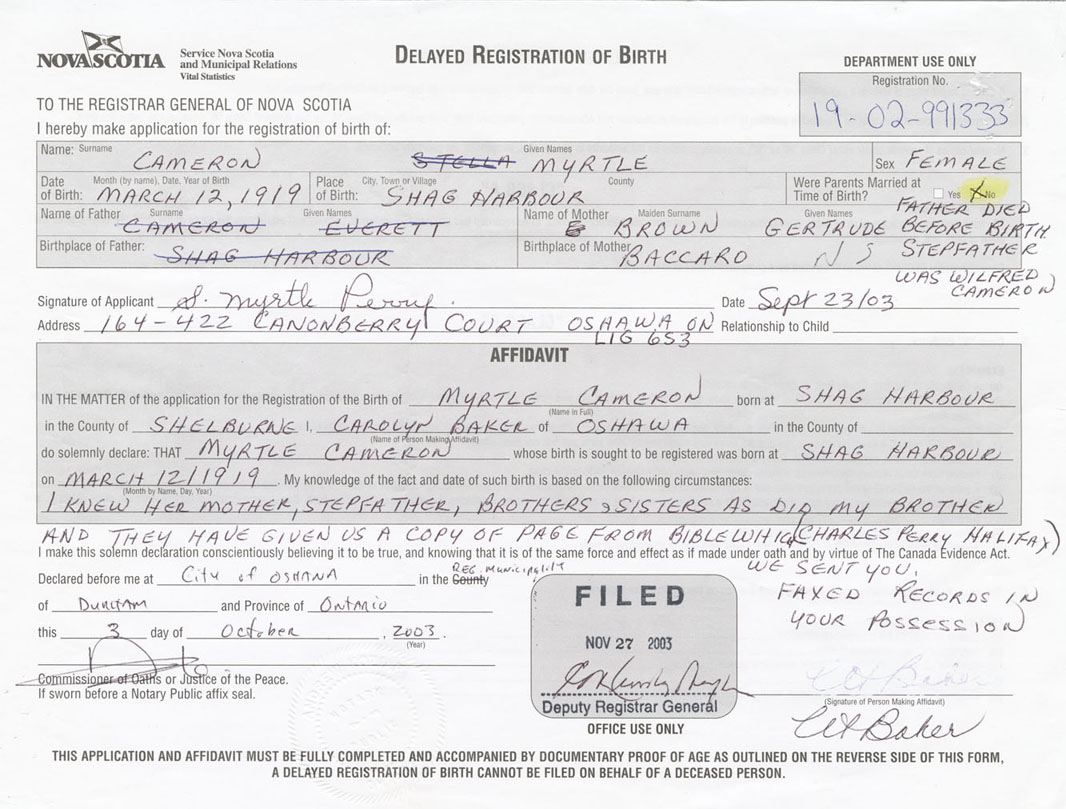 NOVA SCOTIA
Service Nova Scotia
and Municipal Relations
Vital Statistics
DELAYED REGISTRATION OF BIRTH
DEPARTMENT USE ONLY
Registration No.
19-02-991333
TO THE REGISTRAR GENERAL OF NOVA SCOTIA
I hereby make application for the registration of birth of:
Name: Surname CAMERON STELLA Given Names MYRTLE Sex FEMALE
Date of Birth: Month (by name), Date, Year of Birth MARCH 12, 1919 Place of Birth: City, Town or Village SHAG HARBOUR County Were Parents Married at Time of Birth? Yes X No
Name of Father Surname CAMERON Given Names EVERETT Name of Mother Maiden Surname BROWN Given Names GERTRUDE
FATHER DIED
BEFORE BIRTH
Birthplace of Father: SHAG HARBOUR Birthplace of Mother BACCARO NS STEPFATHER
WAS WILFRED
CAMERON
Signature of Applicant S. Myrtle Perry. Date Sept 23/03
Address 164-422 CANONBERRY COURT OSHAWA ON Relationship to Child
L1G 6S3
AFFIDAVIT
IN THE MATTER of the application for the Registration of the Birth of MYRTLE CAMERON born at SHAG HARBOUR
(Name in Full)
in the County of SHELBURNE I, CAROLYN BAKER of OSHAWA in the County of
(Name of Person Making Affidavit)
do solemnly declare: THAT MYRTLE CAMERON whose birth is sought to be registered was born at SHAG HARBOUR
on MARCH 12/1919. My knowledge of the fact and date of such birth is based on the following circumstances:
(Month by Name, Day, Year)
I KNEW HER MOTHER, STEPFATHER, BROTHERS & SISTERS AS DID MY BROTHER
AND THEY HAVE GIVEN US A COPY OF PAGE FROM BIBLE WHICH (CHARLES PERRY HALIFAX)
I make this solemn declaration conscientiously believing it to be true, and knowing that it is of the same force and effect as if made under oath and by virtue of The Canada Evidence Act.
WE SENT YOU.
FAXED RECORDS IN
YOUR POSSESSION
Declared before me at City of OSHAWA in the County REG. Municipality
of DURHAM and Province of ONTARIO
this 3 day of October, 2003.
(Year)
Commissioner of Oaths or Justice of the Peace.
If sworn before a Notary Public affix seal.
FILED
NOV 27 2003
Deputy Registrar General
OFFICE USE ONLY
(Signature of Person Making Affidavit)
Baker
THIS APPLICATION AND AFFIDAVIT MUST BE FULLY COMPLETED AND ACCOMPANIED BY DOCUMENTARY PROOF OF AGE AS OUTLINED ON THE REVERSE SIDE OF THIS FORM,
A DELAYED REGISTRATION OF BIRTH CANNOT BE FILED ON BEHALF OF A DECEASED PERSON.